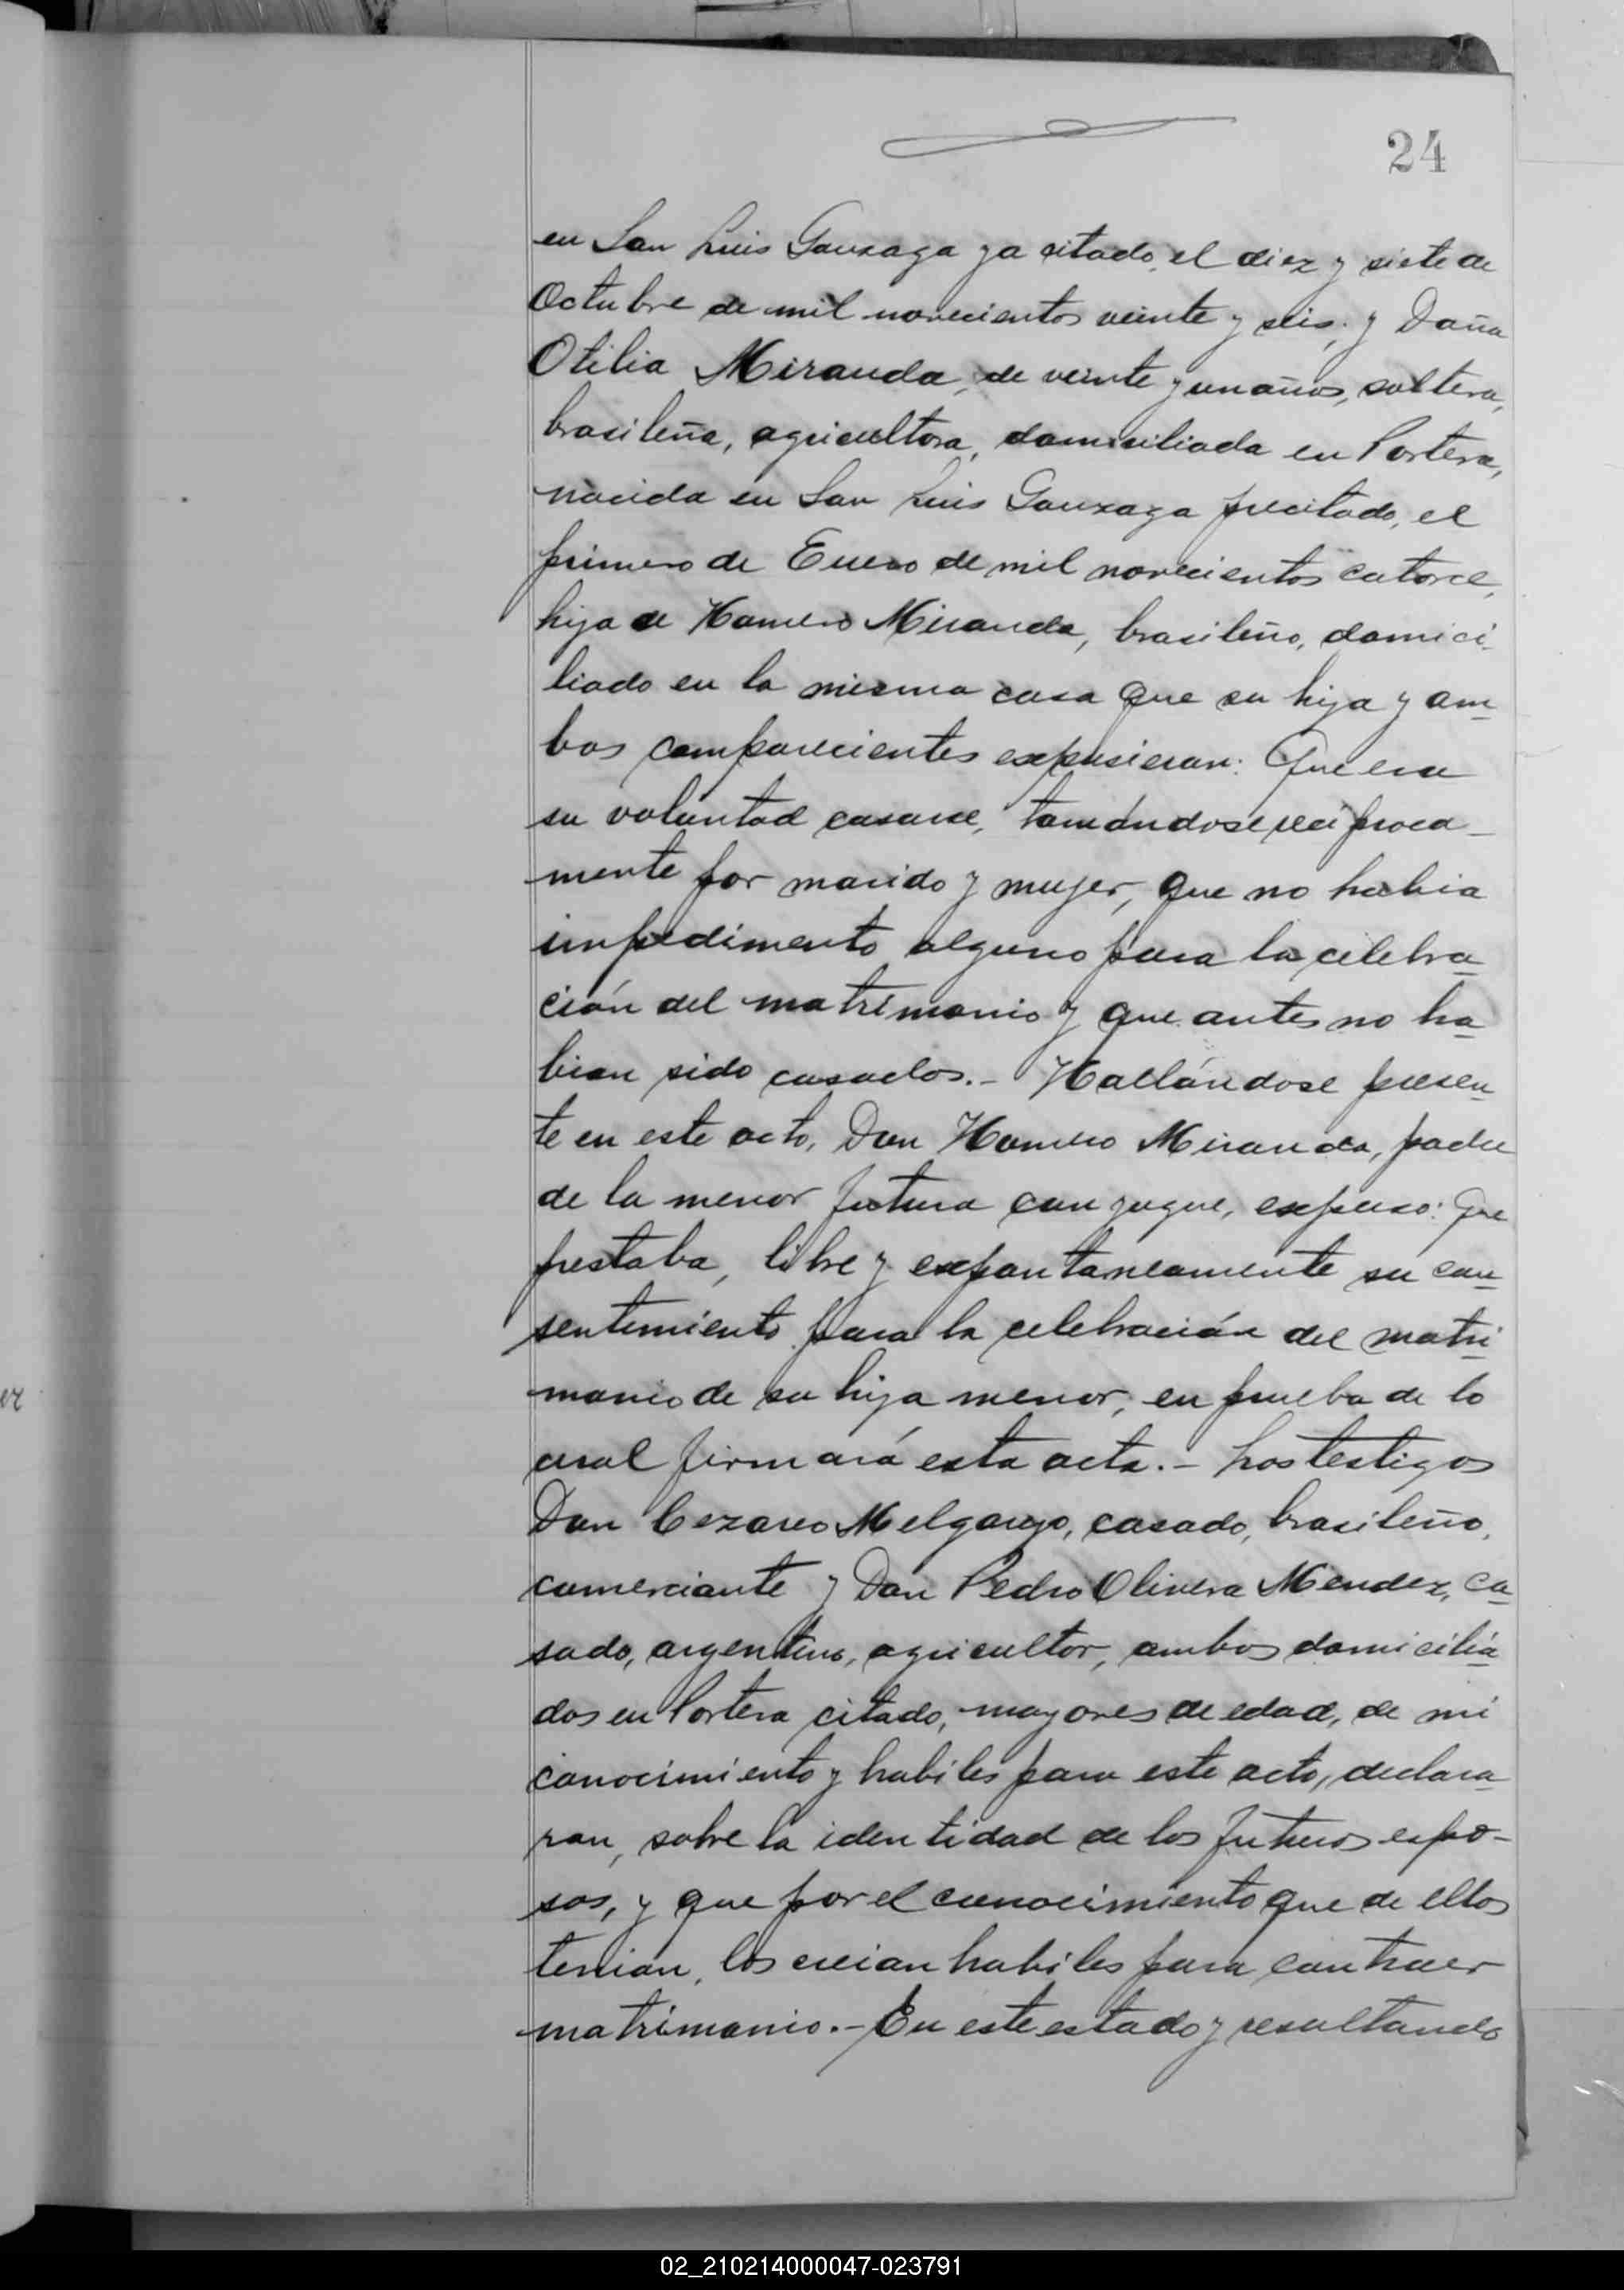 24
en San Luis Gonzaga ya citado, el diez y siete de
Octubre de mil novecientos veinte y seis; y Doña
Otilia Miranda, de veinte y un años, soltera,
brasileña, agricultora, domiciliada en Portera,
nacida en San Luis Gonzaga precitado, el
primero de Enero de mil novecientos catorce,
hija de Homero Miranda, brasileño, domici-
liado en la misma casa que su hija y am-
bos comparecientes expusieron: Que era
su voluntad casarse, tomándose recíproca-
mente por marido y mujer, que no habia
impedimento alguno para la celebra-
ción del matrimonio y que antes no ha-
bian sido casados.- Hallándose presen-
te en este acto, Don Homero Miranda, padre
de la menor futura conyugue, expuso: Que
prestaba, libre y expontaneamente su con-
sentimiento para la celebración del matri-
monio de su hija menor, en prueba de lo
cual firmará esta acta.- Los testigos
Don Cezareo Melgarejo, casado, brasileño,
comerciante y Don Pedro Olivera Mendez, ca-
sado, argentino, agricultor, ambos domicilia-
dos en Portera citado, mayores de edad, de mi
conocimiento y habiles para este acto, declara-
ron, sobre la identidad de los futuros espo-
sos, y que por el conocimiento que de ellos
tenian, los creian habiles para contraer
matrimonio.- En este estado y resultando
02_210214000047-023791